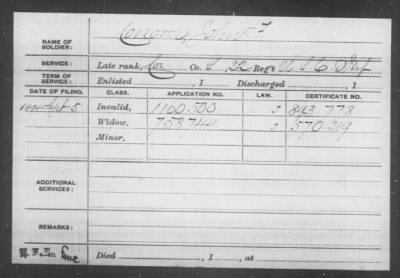 NAME OF SOLDIER: John F
SERVICE: Late rank, Co. 22 Reg't U S C Inf
TERM OF SERVICE: Enlisted , 1 Discharged , 1
DATE OF FILING. CLASS. APPLICATION NO. LAW. CERTIFICATE NO.
Sept 5 Invalid, 1100.500 J 893.778
Widow, 753.749 J
Minor,
ADDITIONAL SERVICES:
REMARKS:
Died , 1 , at